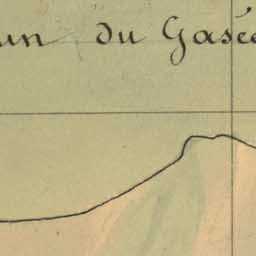 un du Gasé